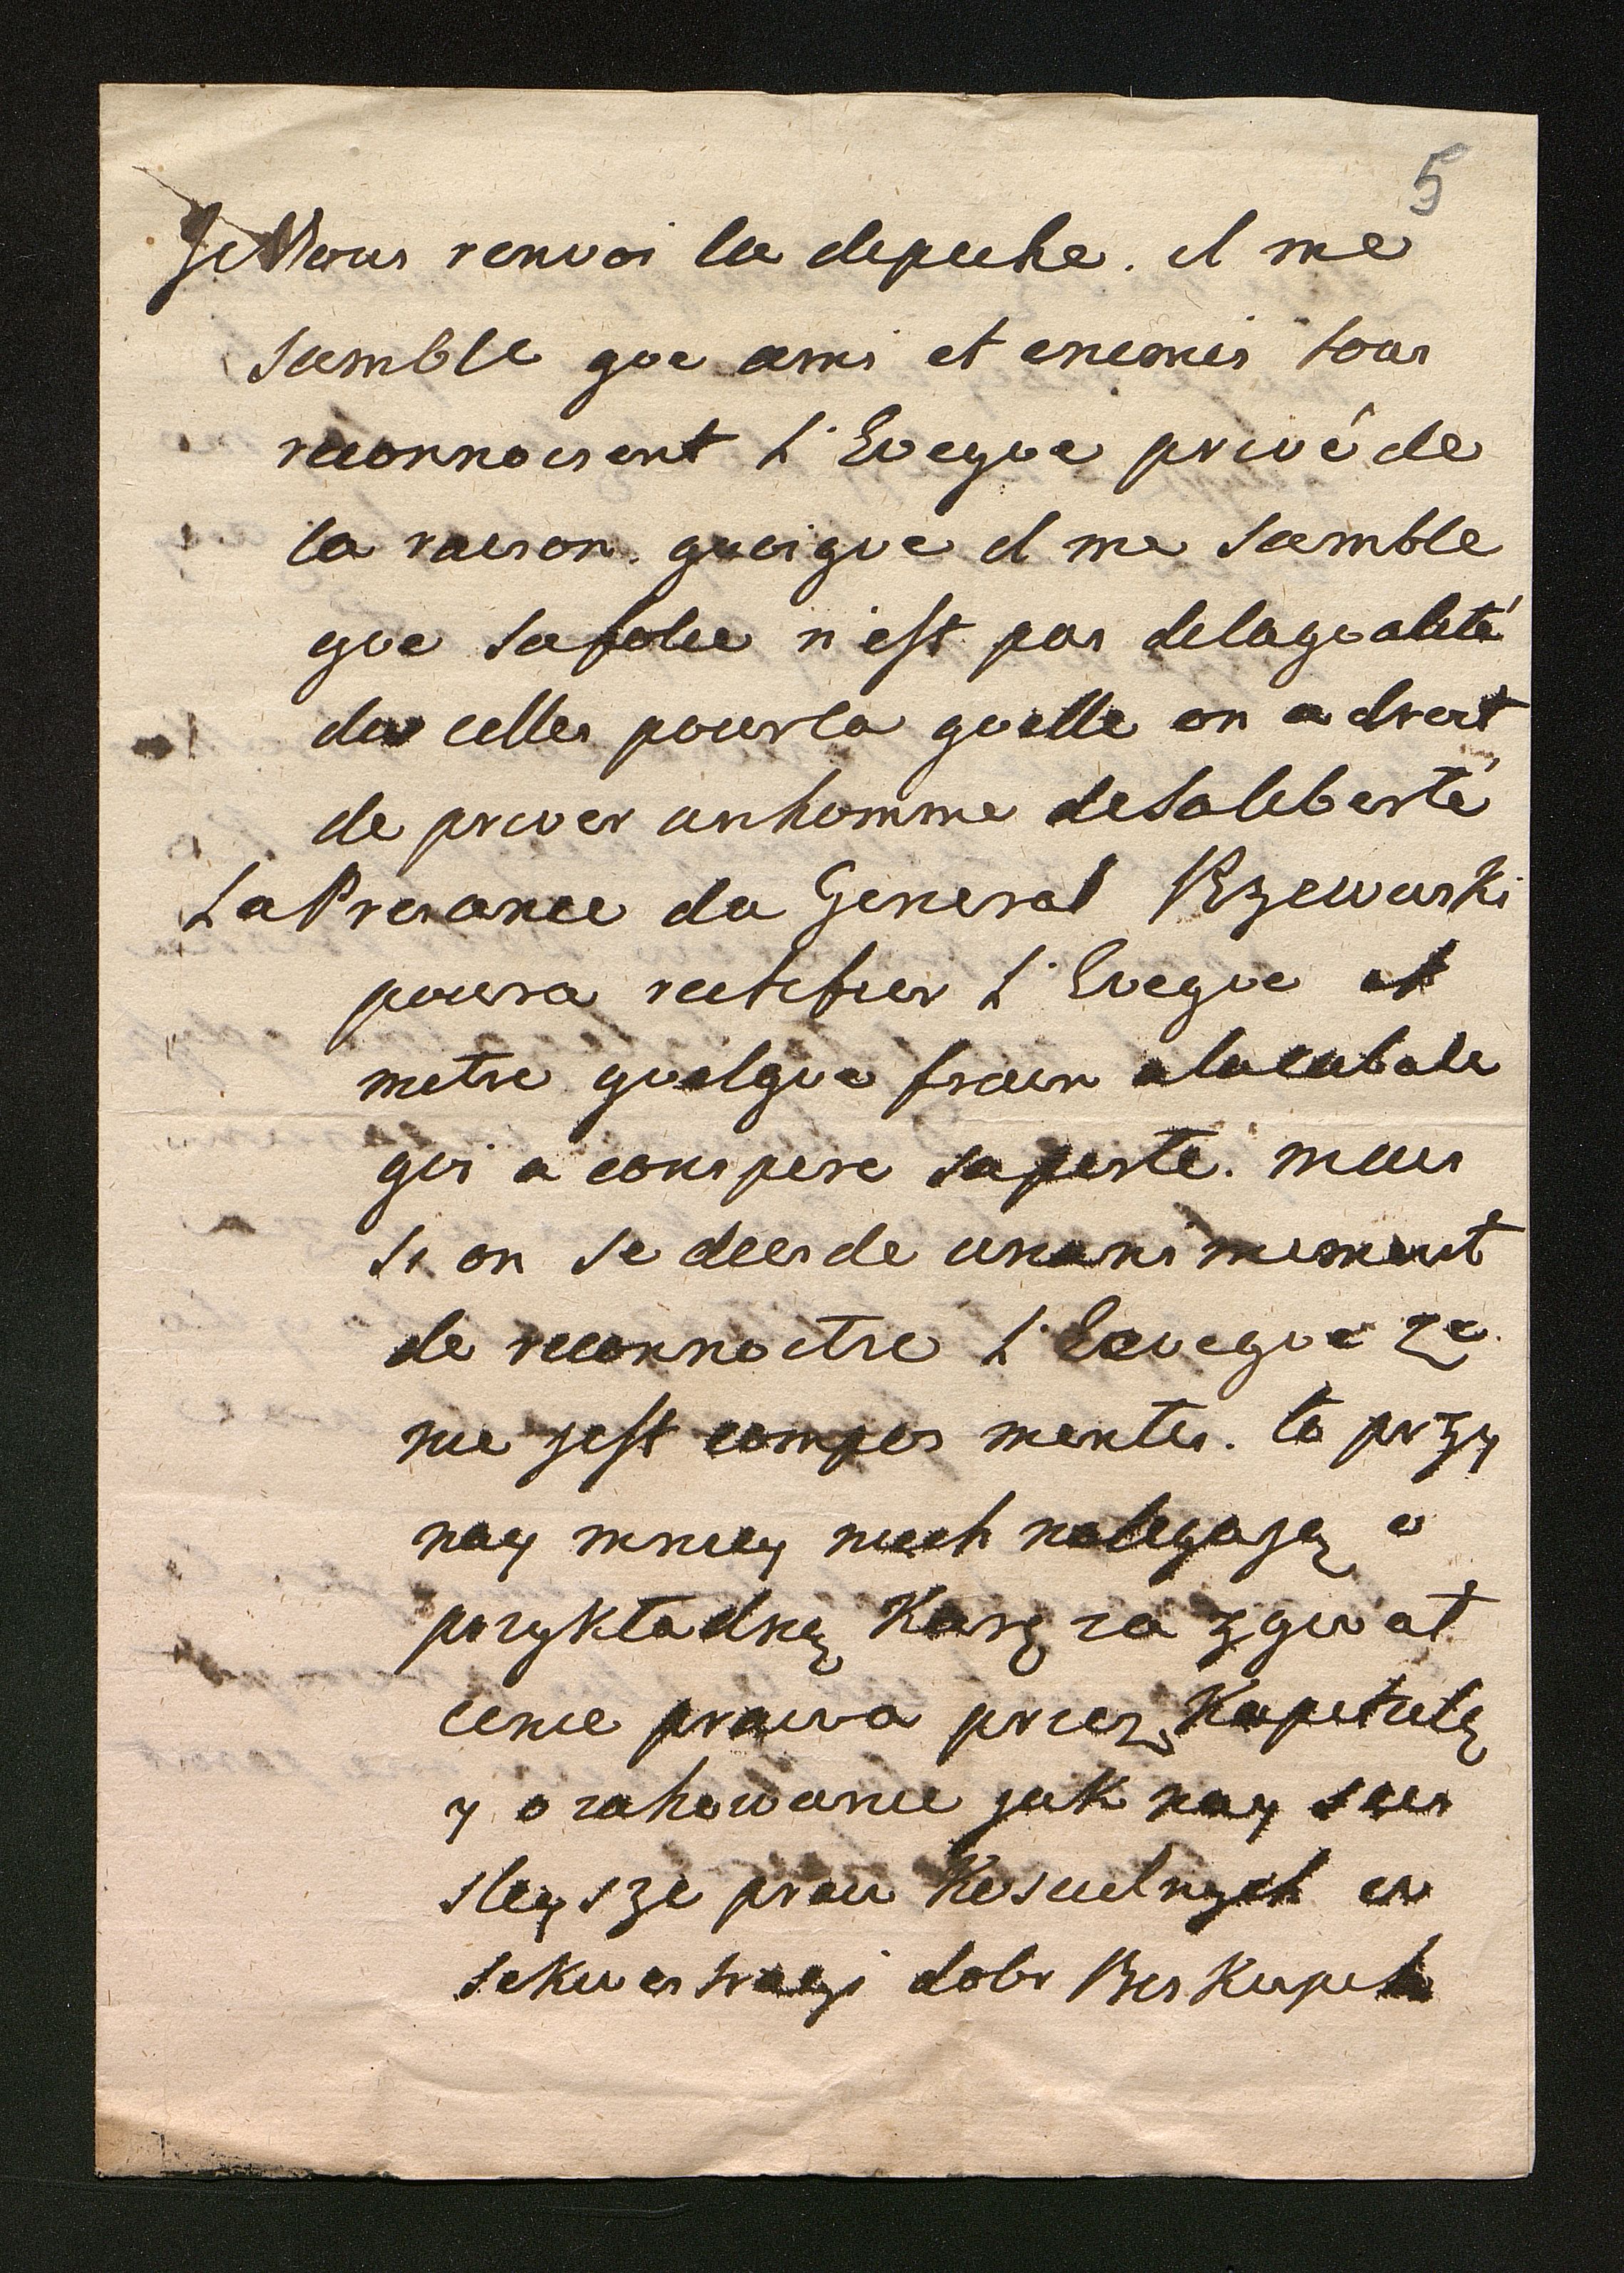 5
Je Vous renvoi la depeche. il me
samble que amis et enemis tous
reconnoisent L'Eveque privé de
la raison. quoique il me samble
que safolie n'est pas delaqualité
de celles pourla quelle on a droit
de priver unhomme desaliberté
La Presance du General Rzewuski
poura rectifier L'Eveque et
metre quelque frain alacabale
qui a conspiré saperte. mais
si on se decide unanimement
de reconnoitre L'Eveque ze
nie jest compos mentis. to przy
nay mniey niech nalegają o
przykładną Karę za zgwał
cenie prawa przez Kapitulę
y o zahowanie jak nay scis
sleysze praw Koscielnych w
sekwestracyi dobr Biskupich